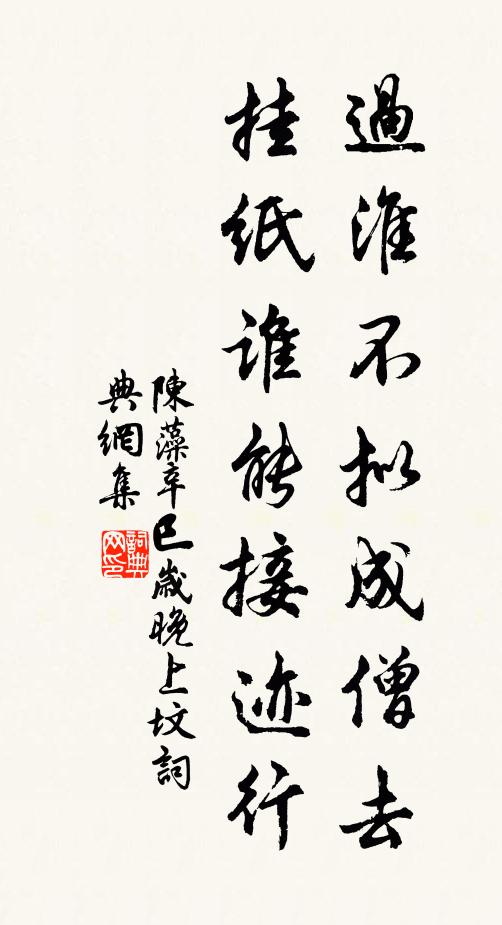 過淮不拟成僧去
挂紙誰能接迹行
陳藻辛巳歲晚上坟詞
典網集
詞典
网印